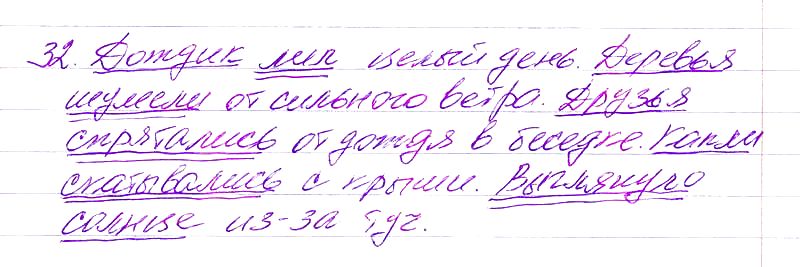 32. Дождик лил целый день. Деревья
шумели от сильного ветра. Друзья
спрятались от дождя в беседке. Капли
скатывались с крыши. Выглянуло
солнце из-за туч.